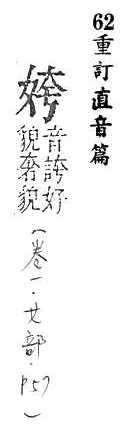 62重訂直音篇
姱
音誇好
貌奢貌
(卷一·女部·p57)